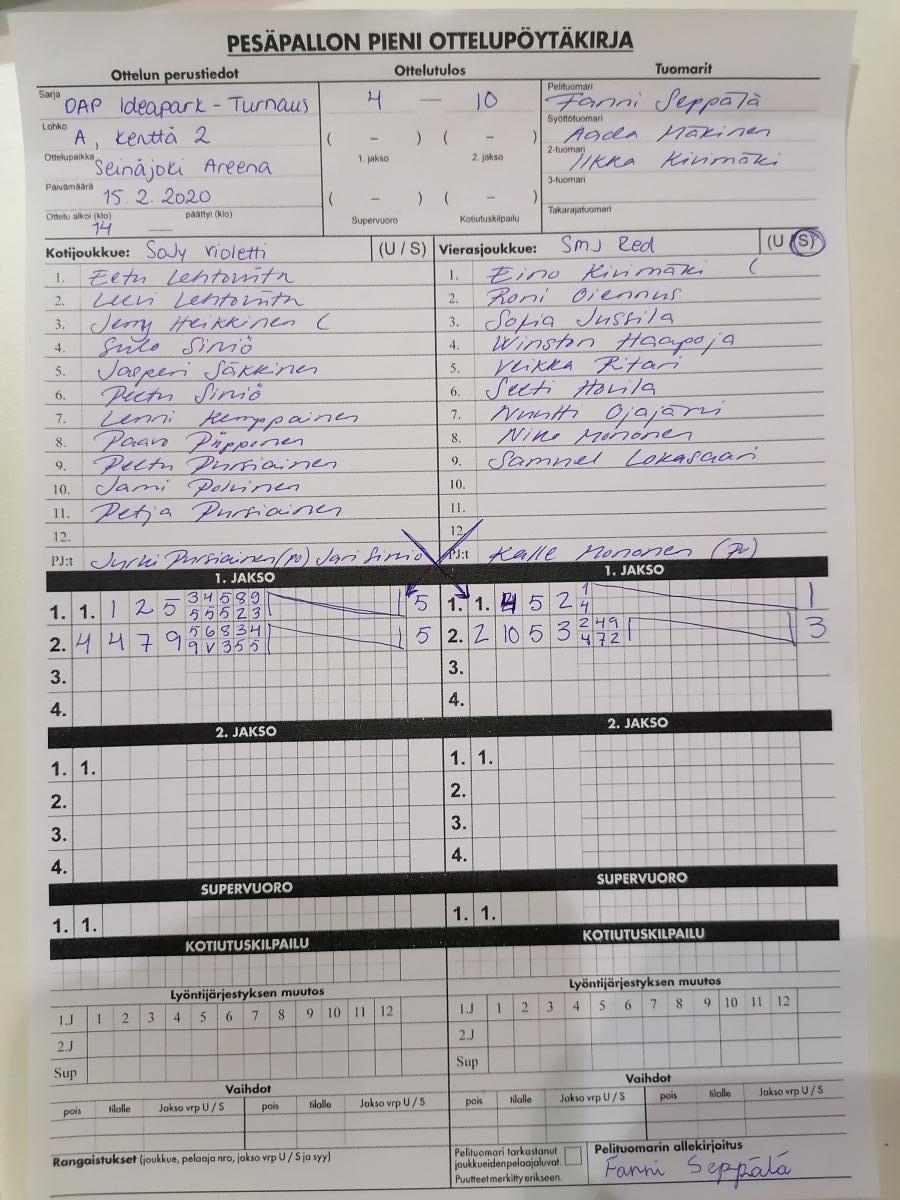 PESÄPALLON PIENI OTTELUPÖYTÄKIRJA
Ottelun perustiedot Ottelutulos Tuomarit
Sarja OAP Ideapark - Turnaus
Lohko A, kenttä 2
Ottelupaikka Seinäjoki Areena
Päivämäärä 15.2.2020
Ottelu alkoi (klo) 14 päättyi (klo) —
4 — 10
( – ) ( – )
1. jakso 2. jakso
( – ) ( – )
Supervuoro Kotiutuskilpailu
Pelituomari Fanni Seppälä
Syöttötuomari Aada Mäkinen
2-tuomari Ilkka Kivimäki
3-tuomari
Takarajatuomari
Kotijoukkue: SoJy Violetti (U / S)
1. Eetu Lehtoviita
2. Leevi Lehtoviita
3. Jerry Heikkinen C
4. Sulo Siniö
5. Jasperi Säkkinen
6. Peetu Siniö
7. Lenni Kemppainen
8. Paavo Piipponen
9. Peetu Pursiainen
10. Jami Polvinen
11. Petja Pursiainen
12.
PJ:t Jyrki Pursiainen (po) Jari Siniö
Vierasjoukkue: SMJ Red (U / S)
1. Eino Kivimäki C
2. Roni Oiennus
3. Sofia Jussila
4. Winston Haapoja
5. Veikka Ritari
6. Seeti Hovila
7. Nuutti Ojajärvi
8. Niko Mononen
9. Samuel Lokasaari
10.
11.
12.
PJ:t Kalle Mononen (P)
1. JAKSO
1. 1. 1 2 5 3 4 5 8 9 5
5 5 5 2 3
2. 4 4 7 9 5 6 8 3 4 5
9 V 3 5 5
3.
4.
1. JAKSO
1. 1. 4 5 2 1 1
4
2. 2 10 5 3 2 4 9 3
4 7 2
3.
4.
2. JAKSO
1. 1.
2.
3.
4.
2. JAKSO
1. 1.
2.
3.
4.
SUPERVUORO
1. 1.
SUPERVUORO
1. 1.
KOTIUTUSKILPAILU
KOTIUTUSKILPAILU
Lyöntijärjestyksen muutos
1.J 1 2 3 4 5 6 7 8 9 10 11 12
2.J
Sup
Lyöntijärjestyksen muutos
1.J 1 2 3 4 5 6 7 8 9 10 11 12
2.J
Sup
Vaihdot
pois tilalle Jakso vrp U / S pois tilalle Jakso vrp U / S
Vaihdot
pois tilalle Jakso vrp U / S pois tilalle Jakso vrp U / S
Rangaistukset (joukkue, pelaaja nro, jakso vrp U / S ja syy)
Pelituomari tarkastanut
joukkueidenpelaajaluvat.
Puutteet merkitty erikseen.
Pelituomarin allekirjoitus
Fanni Seppälä